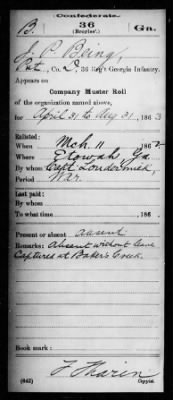 Confederate.
B. 36 Ga.
(Broyles'.)
J. C. Being,
Pvt, Co. D, 36 Reg't Georgia Infantry.
Appears on
Company Muster Roll
of the organization named above,
for April 31 to Aug 31, 1863
Enlisted:
When Mch 11, 1862
Where Etowah, Ga.
By whom Capt. Loudermilk,
Period War.
Last paid:
By whom
To what time , 186 .
Present or absent Absent
Remarks: Absent without leave
Captured at Baker's Creek.
Book mark:
(642) Copyist.